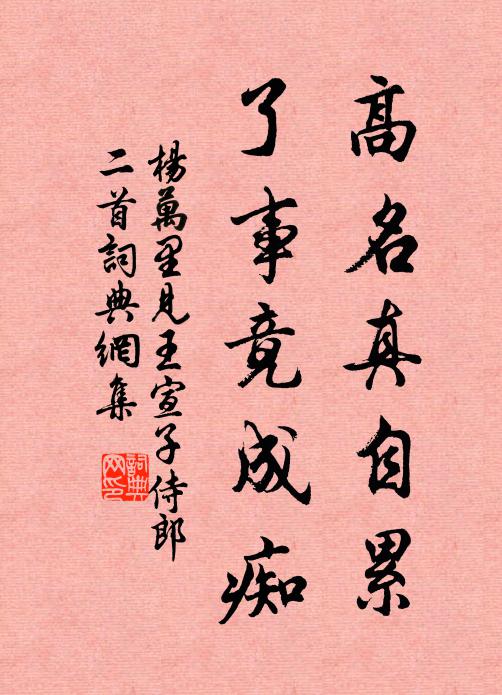 高名真自累
了事竟成痴
楊萬里見王宣子侍郎
二首詞典網集
詞典
网印